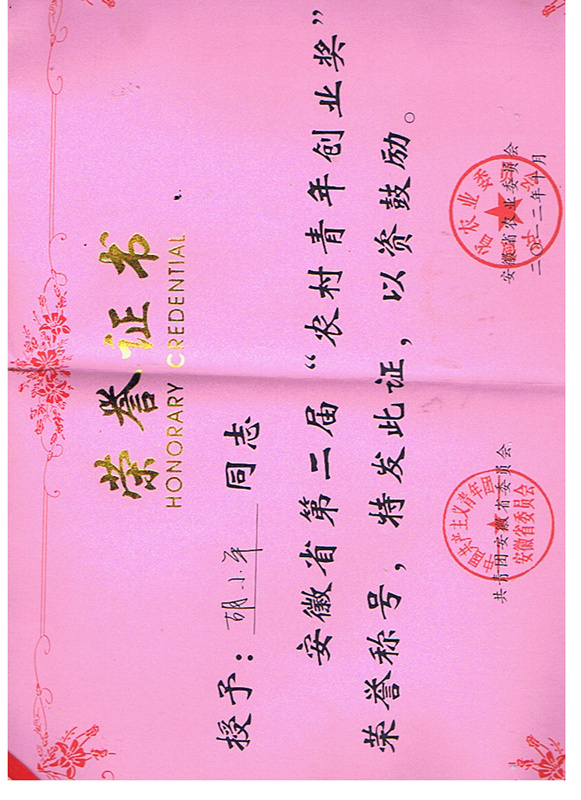 荣誉证书
HONORARY CREDENTIAL
授予：胡小平 同志
安徽省第二届“农村青年创业奖”
荣誉称号，特发此证，以资鼓励。
共青团安徽省委员会
安徽省农业委员会
二〇一二年十月
中国共产主义青年团
安徽省委员会